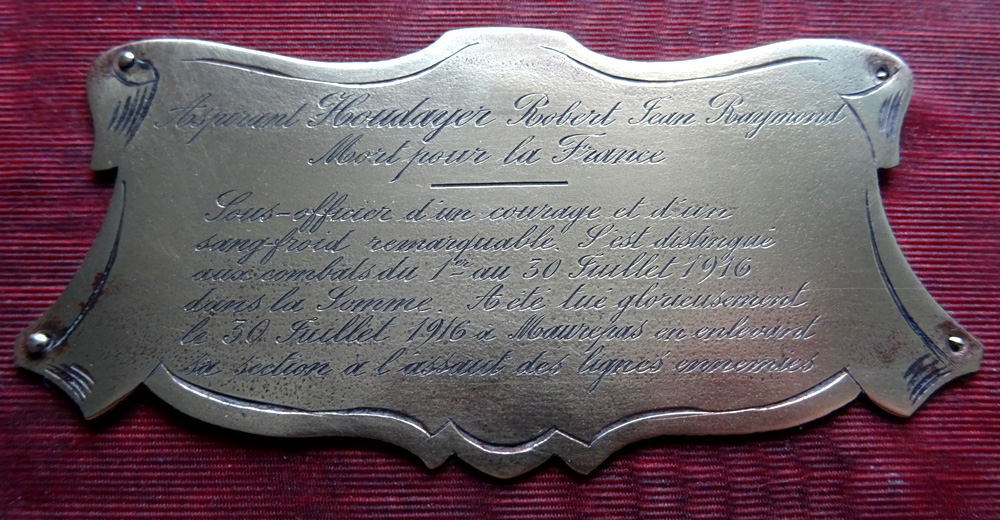 Aspirant Houdayer Robert Jean Raymond
Mort pour la France
Sous-officier d'un courage et d'un
sang-froid remarquable. S'est distingué
aux combats du 1er au 30 Juillet 1916
dans la Somme. A été tué glorieusement
le 30 Juillet 1916 à Maurepas en enlevant
sa section à l'assaut des lignes ennemies